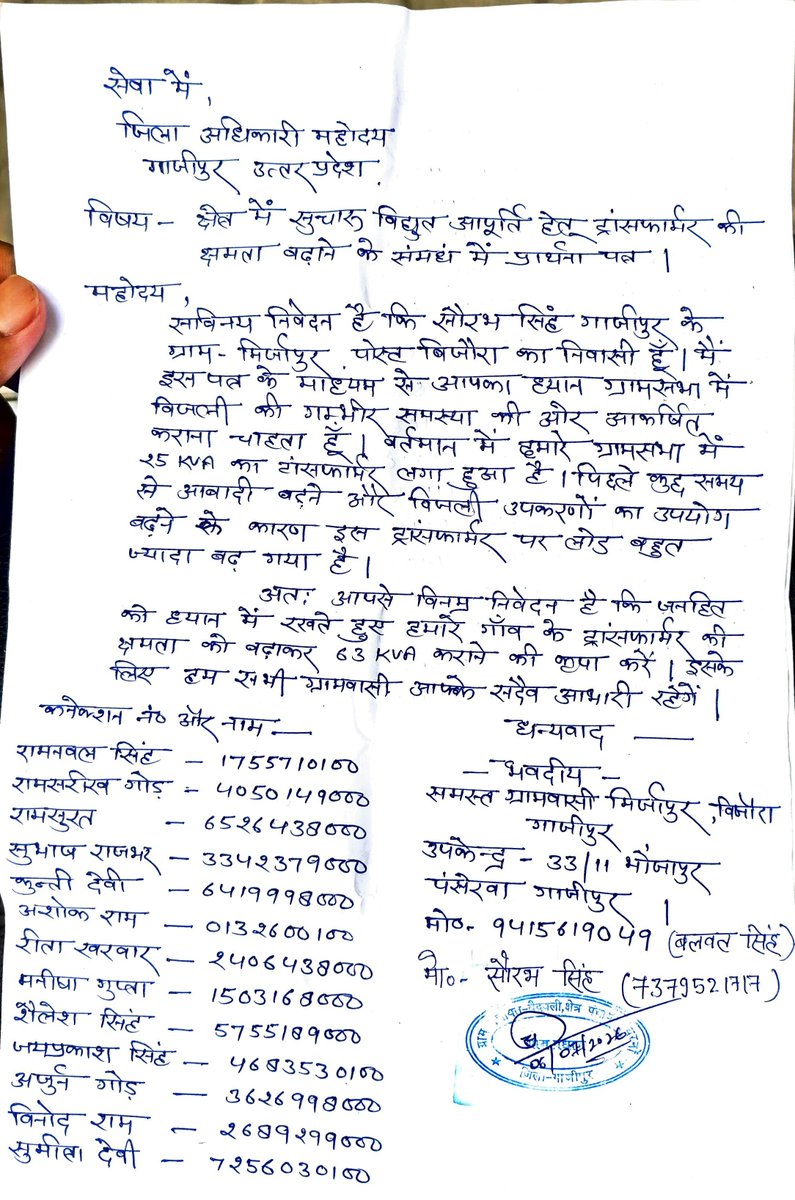 सेवा में,
जिला अधिकारी महोदय
गाजीपुर उत्तर प्रदेश
विषय - क्षेत्र में सुचारू विद्युत आपूर्ति हेतू ट्रांसफार्मर की
क्षमता बढ़ाने के संमधं में प्रार्थना पत्र ।
महोदय,
सविनय निवेदन है कि सौरभ सिंह गाजीपुर के
ग्राम- मिर्जापुर पोस्ट बिजौरा का निवासी हूँ । मैं
इस पत्र के माध्यम से आपका ध्यान ग्रामसभा में
बिजली की गम्भीर समस्या की और आकर्षित
कराना चाहता हूँ । वर्तमान में हमारे ग्रामसभा में
25 KVA का ट्रांसफार्मर लगा हुआ है । पिछले कुछ समय
से आबादी बढ़ने और बिजली उपकरणों का उपयोग
बढ़ने के कारण इस ट्रांसफार्मर पर लोड बहुत
ज्यादा बढ़ गया है ।
अतः आपसे विनम्र निवेदन है कि जनहित
को ध्यान में रखते हुए हमारे गाँव के ट्रांसफार्मर की
क्षमता को बढ़ाकर 63 KVA कराने की कृपा करें । इसके
लिए हम सभी ग्रामवासी आपके सदैव आभारी रहेंगें ।
धन्यवाद —
कनेक्शन नं० और नाम —
रामनवल सिंह - 1755710100
रामसरीख गोड़ - 4050149000
रामसुरत - 6526438000
सुभाष राजभर - 3342379000
कुन्ती देवी - 6419998000
अशोक राम - 0132600100
रीता खरवार - 2406438000
मनीषा गुप्ता - 1503168000
शैलेश सिंह - 5755189000
जयप्रकाश सिंह - 4683530100
अर्जुन गोड़ - 3626998000
विनोद राम - 2689299000
सुमीता देवी - 7256030100
- भवदीय -
समस्त ग्रामवासी मिर्जापुर, बिजौरा
गाजीपुर
उपकेन्द्र - 33/11 मौजापुर
पंसेरवा गाजीपुर ।
मो०- 9415619049 (बलवंत सिंह)
मो०- सौरभ सिंह (7379521717)
ग्राम
जिला-गाजीपुर